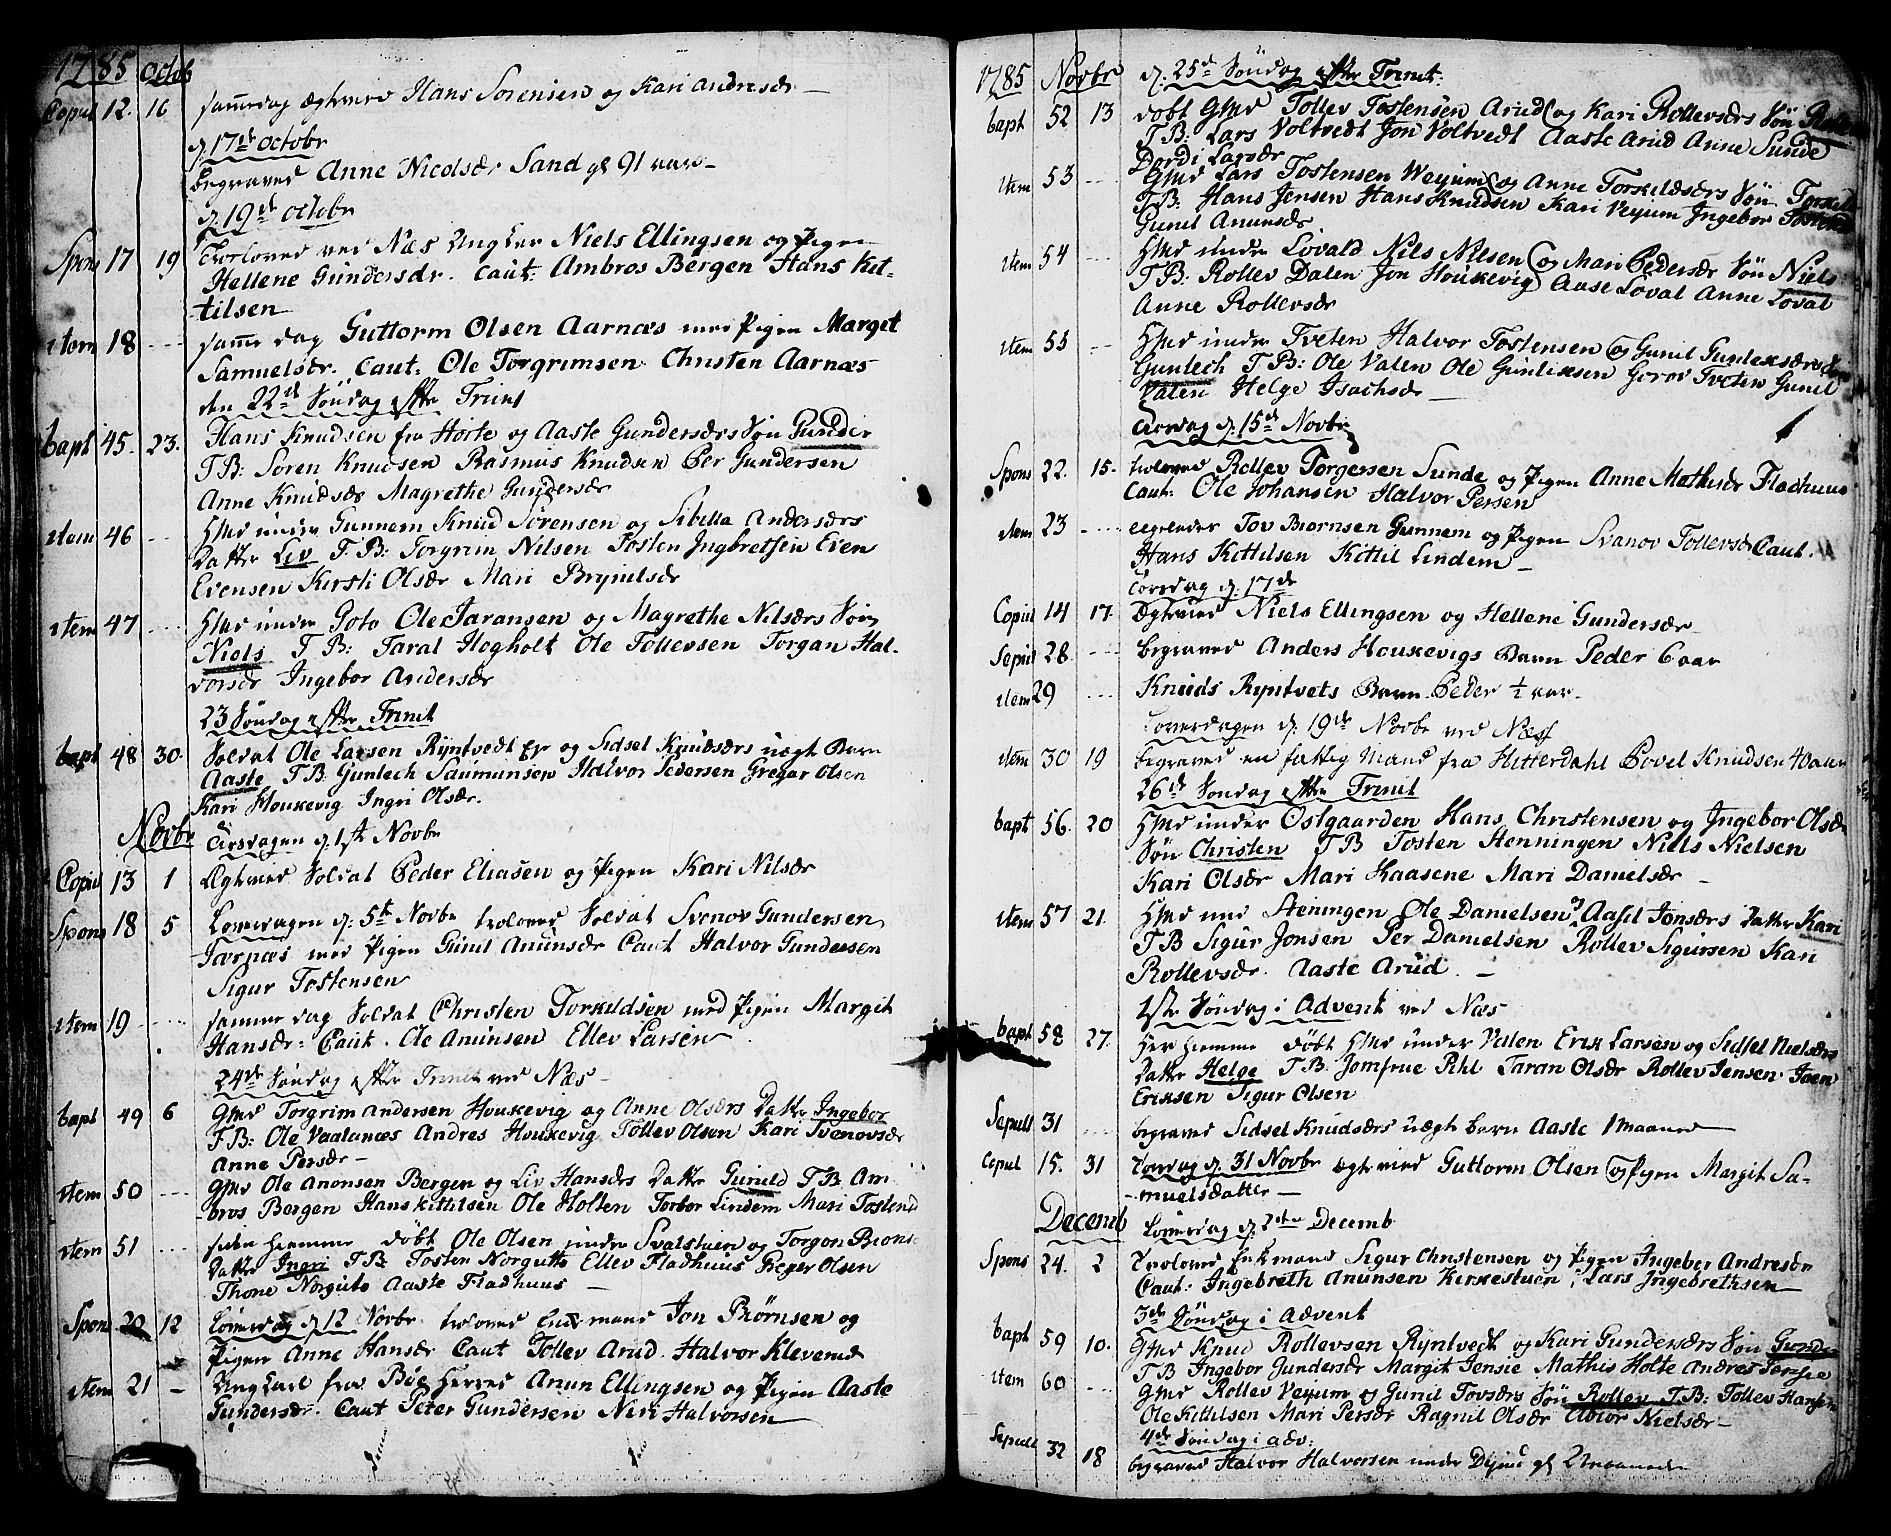 1785 Octob
Copul 12. 16 samme dag ægtevied Hans Sørensen og Kari Andresdr
d. 17de Octobr
begraved Anne Nicolsdr Sand gl 91 aar
d. 19de Octobr
Spons 17 19 Trolovet ved Næs Ungkar Niels Ellingsen og Pigen
Hellene Gundersdr. Caut: Ambros Bergen Hans Kit-
tilsen
item 18 --- samme dag Guttorm Olsen Aarnæs med Pigen Marget
Samuelsdr. Caut: Ole Torgrimsen Christen Aarnæs
den 22de Søndag efter Trinit
bapt 45. 23. Hans Knudsen fra Horte og Aaste Gundersdrs Søn Gunder
T B: Søren Knudsen Rasmus Knudsen Per Gundersen
Anne Knudsdr Magrethe Gundersdr
item 46 --- Hmd under Gunnem Knud Sørensen og Sibella Andersdrs
Datter Liv T. B: Torgrim Nilsen Tosten Ingbretsen Even
Evensen Kirsti Olsdr Mari Brynilsdr
item 47 --- Hmd under Goto Ole Jaransen og Magrethe Nilsdrs Søn
Niels T B: Taral Hogholt Ole Tollevsen Torgan Hal-
vorsdr Ingebor Andersdr
23 Søndag efter Trinit
bapt 48 30. Soldat Ole Larsen Ryntvedt og Sidsel Knudsdrs uægt Barn
Aaste T B Gunlech Halvor Pedersen Gregar Olsen
Kari Houkevig Ingri Olsdr.
Novbr Tirsdagen d. 1ste Novbr
Copul 13 1 Ægtevied Soldat Peder Eliasen og Pigen Kari Nilsdr
Spons 18 5 Løverdagen d. 5te Novbr troloved Soldat Svenov Gundersen
Jarnæs med Pigen Gunil Anunsdr Caut Halvor Gundersen
Sigur Tostensen
item 19 --- samme dag Soldat Christen Torkildsen med Pigen Margit
Hansdr: Caut. Ole Anunsen Ellev Larsen
24de Søndag efter Trinit ved Næs
bapt 49 6 Gmd Torgrim Andersen Houkevig og Anne Olsdrs Datter Ingebor
T. B: Ole Vaalanæs Andres Houkevig Tollev Olsen Kari Svenovsdr
Anne Persdr
item 50 --- Gmd Ole Anonsen Bergen og Liv Hansdrs Datter Gunild T B Am
bros Bergen Hans Kittilsen Ole Holten Torbor Lindem Mari Tostensd
item 51 --- hemme døbt Ole Olsen under Svalstuen og Torgon Biørns
Datter Ingri T B Tosten Norgutto Ellev Fladhuus Greger Olsen
Thone Norguto Aaste Fladhuus
Spons 20 12 Løverdag d. 12 Novbr trolovet Enkemand Jon Biørnsen og
Pigen Anne Hansdr Caut Tollev Arud. Halvor Kleveras
item 21 - Ungkarl fra Bøe Herred Anun Ellingsen og Pigen Aaste
Gundersdr. Caut Peter Gundersen Neri Halvorsen
1785 Novbr d. 25de Søndag efter Trinit:
bapt 52 13 døbt Gmd Tollev Tostensen Arud og Kari Rollevsdrs Søn
T B: Lars Voltvedt Jon Voltvedt Aaste Arud Anne Sunde
Dordi Larsdr
item 53 --- Gmd Lars Tostensen Weyum og Anne Torkildsdrs Søn Torkild
T B: Hans Jensen Hans Knudsen Kari Veyum Ingebor Tostensd
Gunil Anunsdr
item 54 --- Hmd under Lovald Nils Nilsen og Mari Pedersdr Søn Niels
T B: Rollev Dalen Jon Houkevig Aase Loval Anne Loval
Anne Rollevsdr
item 55 --- Hmd under Tveten Halvor Tostensen og Gunil Gunleksdrs Søn
Gunlech T B: Ole Valen Ole Gunleksen Gorov Tveten Gunil
Valen Helge Isachsdr
Tirsdag d. 15de Novbr
Spons 22. 15. trolovet Rollev Torgersen Sunde og Pigen Anne Mathisdr Fladhuus
Caut: Ole Johansen Halvor Persen
item 23 --- Tov Biørnsen Gunnem og Pigen Svanov Tollevsdr Caut.
Hans Kittilsen Kittil Lindem
Torsdag d. 17de
Copul 14 17. Ægtevied Niels Ellingsen og Hellene Gundersdr
Sepul 28 --- begraved Anders Houkevigs Barn Peder 6 aar
item 29 --- Knuds Ryntvets Barn Peder ½ aar
Løverdagen d. 19de Novbr ved Næss
item 30 19 begraved en fattig Mand fra Hitterdahl Povel Knudsen 40 aar
26de Søndag efter Trinit
bapt 56. 20 Hmd under Ostgaarden Hans Christensen og Ingebor Olsdr
Søn Christen T B Tosten Henningen Niels Nielsen
Kari Olsdr Mari Haasene Mari Danielsdr
item 57 21. Hmd und Steningen Ole Danielsen og Aasil Jonsdrs Datter Kari
T B Sigur Jonsen Per Danielsen Rollev Sigursen Kari
Rollevsdr. Aaste Arud
1ste Søndag i Advent ved Næs
bapt 58 27. Her hemme døbt Hmd under Valen Erik Larsen og Sidsel Nielsdrs
Datter Helge T B. Jomfrue Pihl Taran Olsdr Rollev Jensen Joen
Eriksen Sigur Olsen
Sepult 31 --- begraved Sidsel Knudsdrs uægt barn Aaste 1 Maaned
Copul 15. 31 Torsdag d. 31 Novbr ægtevied Guttorm Olsen og Pigen Margit Sa-
muelsdatter
Decemb Løverdag d. 2den Decemb
Spons 24. 2 Trolovet Enkemand Sigur Christensen og Pigen Ingebor Andresdr
Caut: Ingebreth Anunsen Kirkestuen, Lars Ingebrethsen
3de Søndag i Advent
bapt 59 10. Gmd Knud Rollevsen Ryntvedt og Kari Gundersdrs Søn Gunder
T B Ingebor Gundersdr Margit Jensie Mathis Holte Andres
item 60 --- Gmd Rollev Veyum og Gunil Tovsdrs Søn Rollev T. B: Tollev Hansen
Ole Kittilsen Mari Persdr Ragnil Olsdr Nielsdr
4de Søndag i Adv:
Sepult 32 18 begraved Halvor Halvorsen under gl